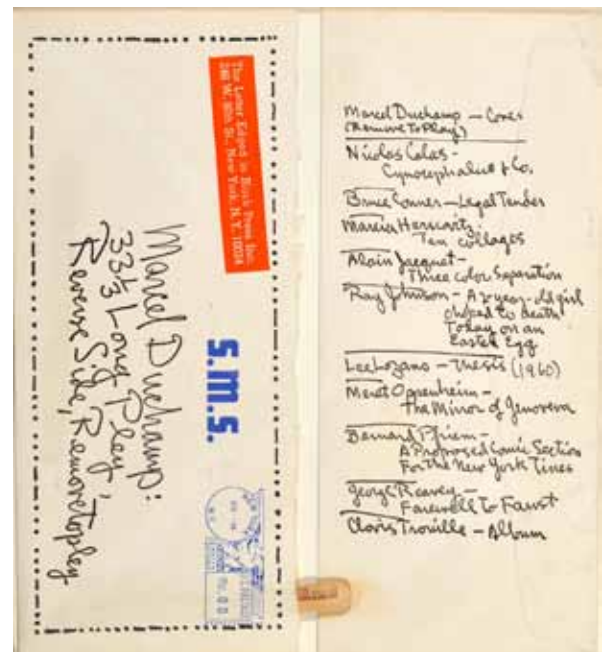 The Letter Edged in Black Press Inc.
246 W. 80th St., New York, N.Y. 10024
S.M.S.
Marcel Duchamp:
33⅓ Long Pley,
Reverse Side, Remove to pley
Marcel Duchamp — Cover
(Remove To Play)
Nicolas Calas -
Cynocephalus & Co.
Bruce Conner — Legal Tender
Marcia Herscovitz -
Ten collages
Alain Jacquet -
Three color Separation
Ray Johnson - A 2 year-old girl
choked to death
Today on an
Easter Egg
Lee Lozano — Thesis (1960)
Meret Oppenheim -
The Mirror of Genoveva
Bernard Pfriem -
A Proposed Comic Section
For the New York Times
George Reavey -
Farewell to Faust
Clovis Trouille - Album